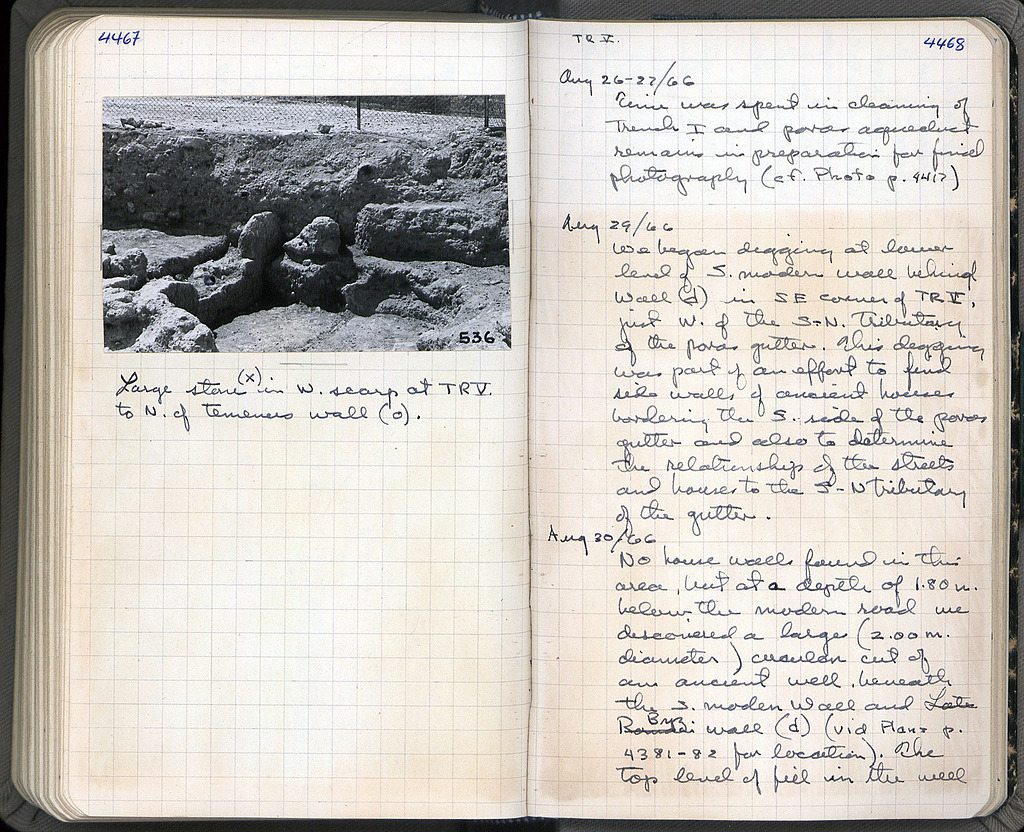 4467
536
Large stone (x) in W. scarp at TR V.
to N. of temenos wall (o).
TR V.
4468
Aug 26-27/66
Time was spent in cleaning of
Trench I and poros aqueduct
remains in preparation for final
photography (cf. Photo p. 4417)
Aug 29/66
We began digging at lower
level of S. modern wall behind
Wall (d) in SE corner of TR V,
just W. of the S-N. Tributary
of the poros gutter. This digging
was part of an effort to find
side walls of ancient houses
bordering the S. side of the poros
gutter and also to determine
the relationship of the streets
and houses to the S-N tributary
of the gutter.
Aug 30/66
No house walls found in this
area, but at a depth of 1.80 m.
below the modern road we
discovered a large (2.00 m.
diameter) circular cut of
an ancient well, beneath
the S. modern wall and Late
Byz. wall (d) (vid Plans p.
4381-82 for location). The
top level of fill in the well